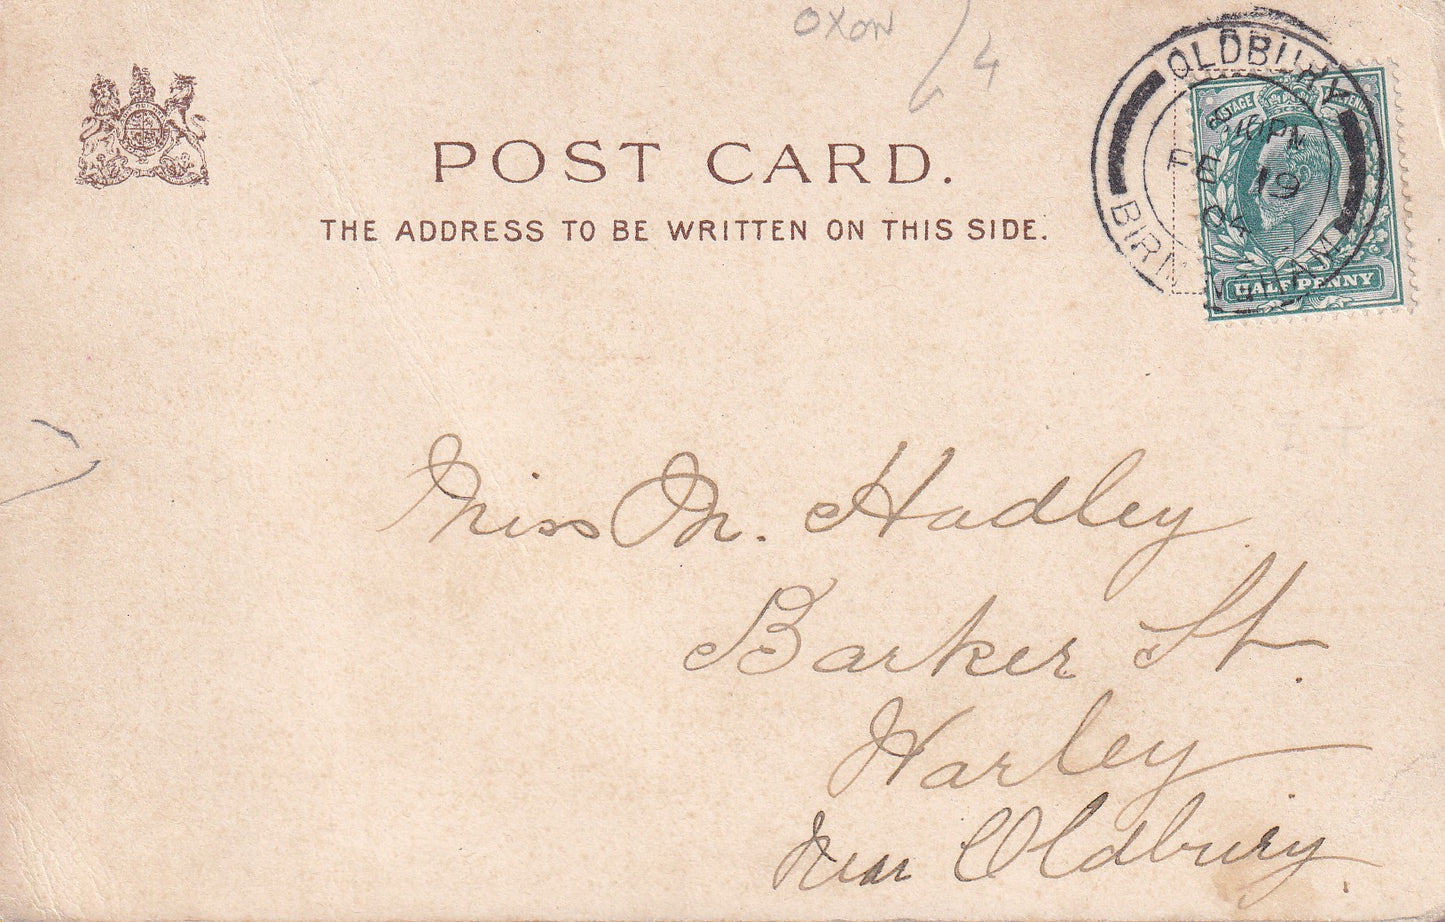 OXON /4
POST CARD.
THE ADDRESS TO BE WRITTEN ON THIS SIDE.
OLDBURY
BIRMINGHAM
PM
DE 19
04
POSTAGE REVENUE
HALFPENNY
Miss M. Hadley
Barker St.
Warley
Near Oldbury.